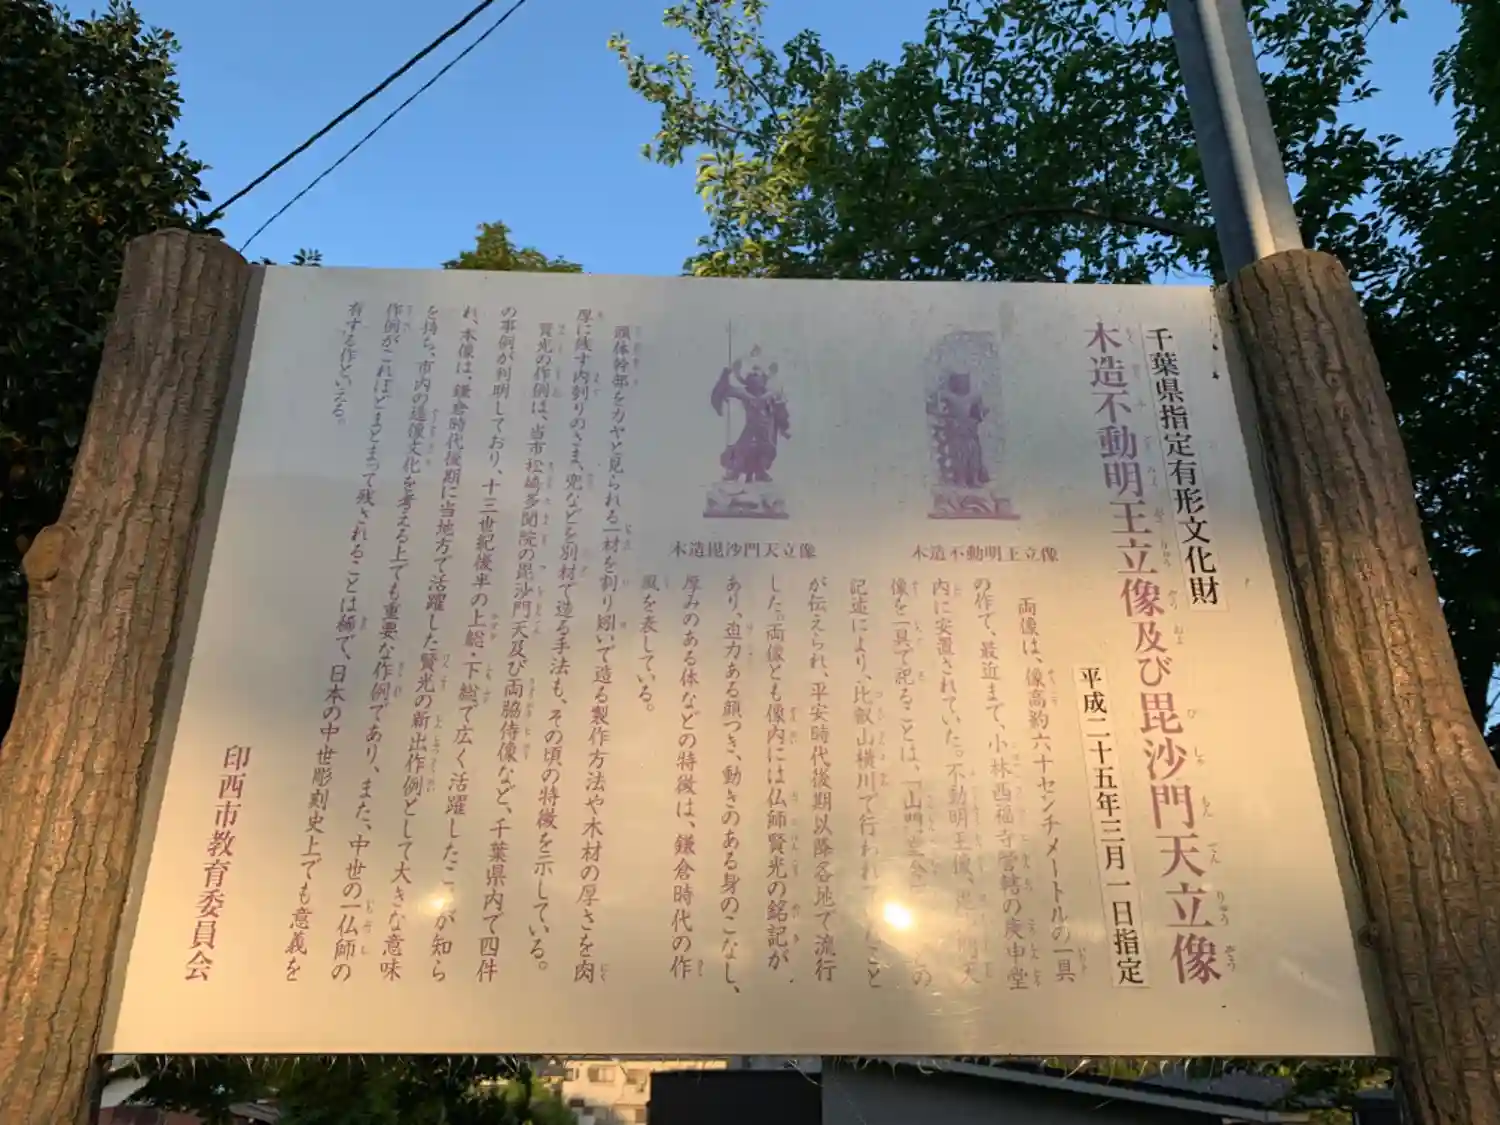 千葉県指定有形文化財
木造不動明王立像及び毘沙門天立像
平成二十五年三月一日指定
木造不動明王立像
木造毘沙門天立像
両像は、像高約六十センチメートルの一具
の作で、最近まで、小林西福寺管轄の庚申堂
内に安置されていた。不動明王像、門天
像を一具で祀ることは、「山門の
記述により、比叡山横川で行われたこと
が伝えられ、平安時代後期以降各地で流行
した。両像とも像内には仏師賢光の銘記が
あり、迫力ある顔つき、動きのある身のこなし、
厚みのある体などの特徴は、鎌倉時代の作
風を表している。
頭体幹部をカヤと見られる一材を割り矧いで造る製作方法や木材の厚さを肉
厚に残す内刳りのさま、兜などを別材で造る手法も、その頃の特徴を示している。
賢光の作例は、当市松崎多聞院の毘沙門天及び両脇侍像など、千葉県内で四件
の事例が判明しており、十三世紀後半の上総・下総で広く活躍したことが知ら
れ、本像は、鎌倉時代後期に当地方で活躍した賢光の新出作例として大きな意味
を持ち、市内の造像文化を考える上でも重要な作例であり、また、中世の一仏師の
作例がこれほどまとまって残されることは稀で、日本の中世彫刻史上でも意義を
有する作といえる。
印西市教育委員会